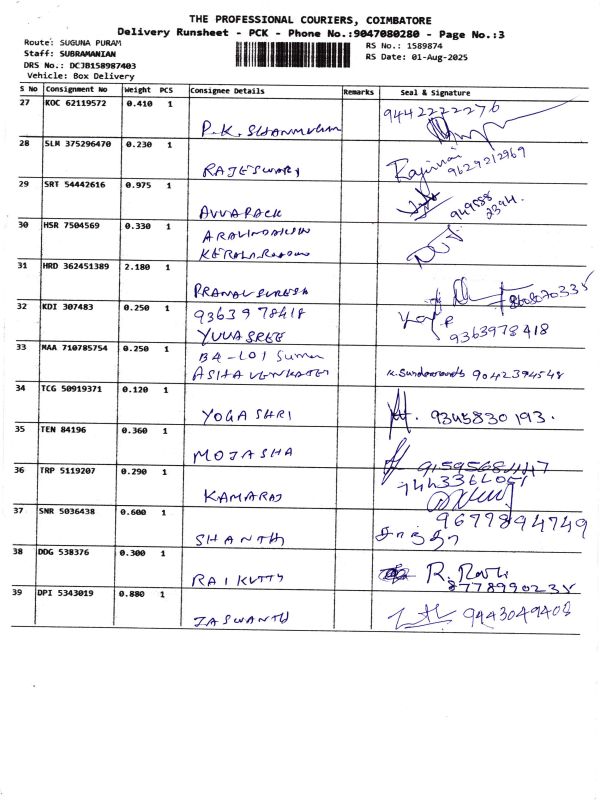 THE PROFESSIONAL COURIERS, COIMBATORE
Delivery Runsheet - PCK - Phone No.:9047080280 - Page No.:3
Route: SUGUNA PURAM
RS No.: 1589874
Staff: SUBRAMANIAN
RS Date: 01-Aug-2025
DRS No.: DCJB158987403
Vehicle: Box Delivery
S No Consignment No Weight PCS Consignee Details Remarks Seal & Signature
27 KOC 62119572 0.410 1
9442222276
P.K. SHANMUGAM
28 SLM 375296470 0.230 1
RAJESWARI
9629212969
29 SRT 54442616 0.975 1
AVVAPACK
30 HSR 7504569 0.330 1
31 HRD 362451389 2.180 1
PRANAV SURESH
32 KDI 307483 0.250 1
9363978418
YUVASREE
9363978418
33 MAA 710785754 0.250 1
B4-101 Suman
9042394548
34 TCG 50919371 0.120 1
YOGASHRI
9345830193.
35 TEN 84196 0.360 1
MOJASHA
36 TRP 5119207 0.290 1
KAMARAJ
37 SNR 5036438 0.600 1
9677894749
SHANTHI
38 DDG 538376 0.300 1
RAIKUTTY
R. Ravi
8778990235
39 DPI 5343019 0.880 1
JASWANTH
9443049408